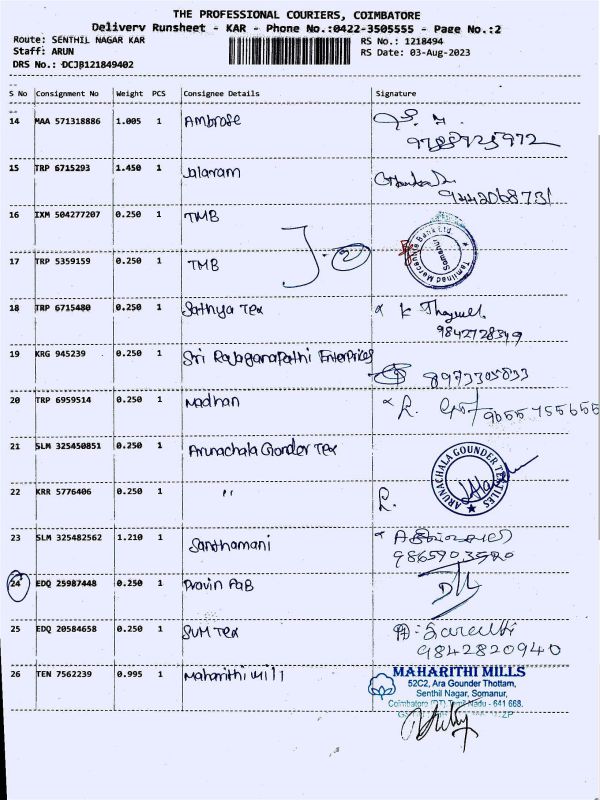 THE PROFESSIONAL COURIERS, COIMBATORE
Delivery Runsheet - KAR - Phone No.:0422-3505555 - Page No.:2
Route: SENTHIL NAGAR KAR RS No.: 1218494
Staff: ARUN RS Date: 03-Aug-2023
DRS No.: DCJB121849402
S No Consignment No Weight PCS Consignee Details Signature
14 MAA 571318886 1.005 1 Ambrose
15 TRP 6715293 1.450 1 Jalaram
9442068731
16 IXM 504277207 0.250 1 TMB
Tamilnad Mercantile Bank Ltd
Somanur
17 TRP 5359159 0.250 1 TMB
18 TRP 6715480 0.250 1 Sathya Tex K
9842728349
19 KRG 945239 0.250 1 Sri Rajaganapathi Enterprices
8973305833
20 TRP 6959514 0.250 1 Madhan R.
9655 755655
21 SLM 325450851 0.250 1 Arunachala Gounder Tex
ARUNACHALA GOUNDER TEXTILES
22 KRR 5776406 0.250 1 "
R.
23 SLM 325482562 1.210 1 Santhamani
24 EDQ 25987448 0.250 1 Pravin PaB
25 EDQ 20584658 0.250 1 SUM Tex
9842820940
26 TEN 7562239 0.995 1 Maharithi Mill
MAHARITHI MILLS
52C2, Ara Gounder Thottam,
Senthil Nagar, Somanur,
Coimbatore (DT) Tamil Nadu - 641 668.